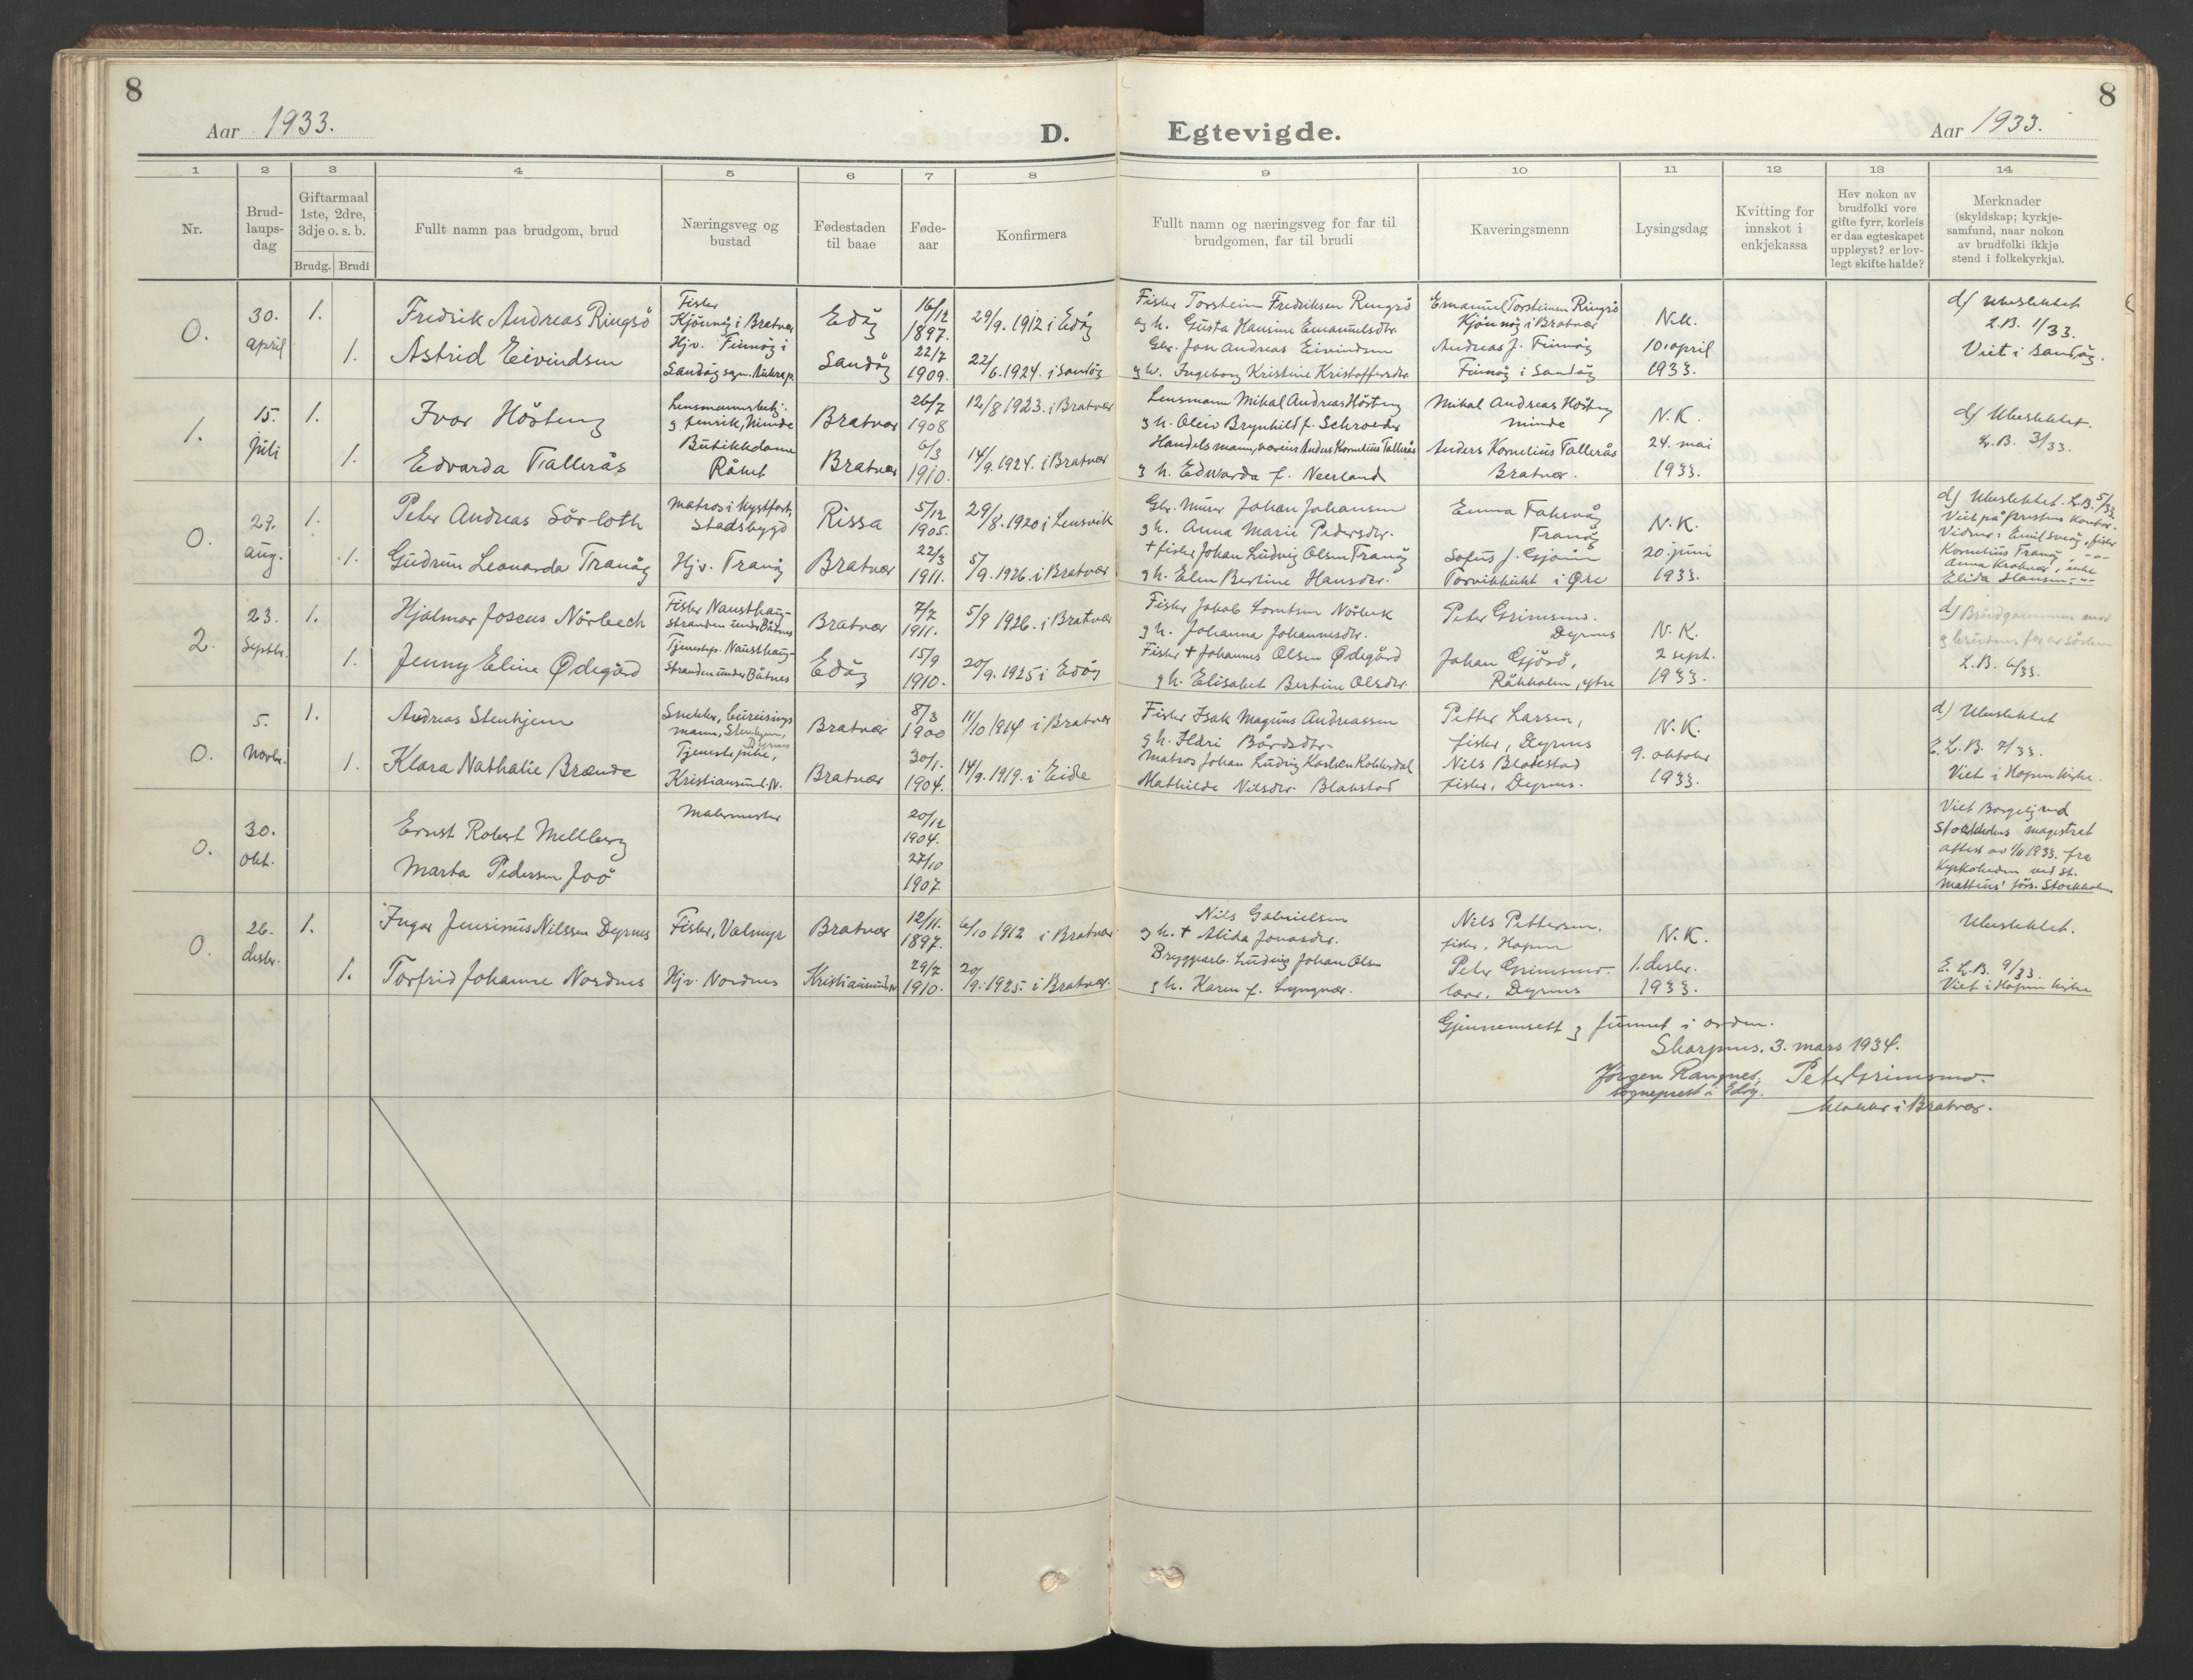 8
Aar 1933.
D.
Egtevigde.
Aar 1933.
8
1 2 3 4 5 6 7 8 9 10 11 12 13 14
Nr.
Brud-
laups-
dag
Giftarmaal
1ste, 2dre,
3dje o. s. b.
Brudg. Brudi
Fullt namn paa brudgom, brud
Næringsveg og
bustad
Fødestaden
til baae
Føde-
aar
Konfirmera
Fullt namn og næringsveg for far til
brudgomen, far til brudi
Kaveringsmenn
Lysingsdag
Kvitting for
innskot i
enkjekassa
Hev nokon av
brudfolki vore
gifte fyrr, korleis
er daa egteskapet
uppløyst? er lov-
legt skifte halde?
Merknader
(skyldskap; kyrkje-
samfund, naar nokon
av brudfolki ikkje
stend i folkekyrkja).
0.
30.
april
1.
Fredrik Andreas Ringsö
Fisker
Kjönnöy i Bratvær
Edöy
16/12
1897.
29/9. 1912 i Edöy
Fisker Torstein Fredriksen Ringsö
og h. Gusta Hansine Emanuelsdtr.
Emanuel Torsteinsen Ringsö
Kjönnöy i Bratvær
N.K.
10. april
1933.
d) Ubeslektet
L.B. 1/33.
Viet i Sandöy.
1.
Astrid Eivindsen
Hjv. Finnöy i
Sandöy sogn. Aukra p.
Sandöy
22/7
1909.
22/6. 1924. i Sandöy
Gbr. Jon Andreas Eivindsen
g h. Ingeborg Kristine Kristoffersdtr.
Andreas J. Finnöy
Finnöy i Sandöy
1.
15.
juli
1.
Ivar Hösteng
Lensmannsbetj.
g fenrik, Minde
Bratvær
26/7
1908
12/8 1923. i Bratvær
Lensmann Mikal Andreas Hösteng
g h. Oleiv Brynhild f. Schroeder
Mikal Andreas Hösteng
Minde
N.K.
24. mai
1933.
d) Ubeslektet.
L.B. 3/33.
1.
Edvarda Tallerås
Butikkdame
Råket
Bratvær
6/3
1910.
14/9. 1924. i Bratvær
Handelsmann, væreier Anders Kornelius Tallerås
g h. Edvarda f. Neerland
Anders Kornelius Tallerås
Bratvær.
0.
27.
aug.
1.
Peter Andreas Sör-loth
Matros i Kystfart,
Stadsbygd
Rissa
5/12
1905.
29/8. 1920 i Lensvik
Gbr. Murer Johan Johansen
g h. Anna Marie Pedersdtr.
Emma Fahsvåg
Tranöy
N.K.
20. juni
1933.
d) Ubeslektet. L.B. 5/33
Viet på Prestens Kontor.
Vidner: Emil Sveöy, fisker
Kornelius Tranöy, -"-
Anna Krakvær, enke
Elida Hansen -"-
1.
Gudrun Leonarda Tranöy
Hjv. Tranöy
Bratvær
22/3
1911.
5/9. 1926. i Bratvær
+ fisker Johan Ludvig Olsen Tranöy
g h. Elen Bertine Hansdtr.
Sofus J. Gjönnes
Torvikbukt i Øre
2.
23.
Septbr.
1.
Hjalmar Joseus Nörbech
Fisker Nausthaug-
stranden under Båtnes
Bratvær
7/7
1911.
5/9 1926. i Bratvær
Fisker Jakob Lorntsen Nörbek
g h. Johanna Johannesdtr.
Peter Grimsmo.
Dyrnes
N.K.
2 sept.
1933.
d) Brudgommens mor
g brudens far er sösken
L.B. 6/33.
1.
Jenny Eline Ødegård
Tjenestep. Nausthaug-
stranden under Båtnes
Edöy
15/9
1910.
20/9. 1925 i Edöy
Fisker + Johannes Olsen Ødegård
g h. Elisabet Bertine Olsdtr.
Johan Gjösö,
Råkholm, ytre
0.
5.
Novbr.
1.
Andreas Stenhjem
Snekker, bureisings
mann, Stenhjem,
Dyrnes
Bratvær
8/3
1900
11/10 1914 i Bratvær
Fisker Isak Magnus Andreassen
g h. Ildri Bårdsdtr.
Petter Larsen,
fisker, Dyrnes
N.K.
9. oktober
1933.
d) Ubeslektet
E.L.B. 7/33.
Viet i Hopen kirke.
1.
Klara Nathalie Brænde
Tjenestepike,
Kristiansund. N.
Bratvær
30/1.
1904.
14/9. 1919. i Eide
Matros Johan Ludvig Karlsen
Mathilde Nilsdtr. Blakstad
Nils Blakestad
fisker, Dyrnes.
0.
30.
okt.
Ernst Robert Mellberg
Malermester
20/12
1904.
Marta Pedersen Joö
27/10
1907.
Viet Borgelig ved
Stockholms magistrat
attest av 1/11 1933. fra
Kyrkoherden ved St.
Matteus' förs. Stockholm
0.
26.
desbr.
1.
Ingar Jensinus Nilssen Dyrnes
Fisker, Valmyr
Bratvær
12/11.
1897.
6/10 1912 i Bratvær
Nils Gabrielsen
g h. + Alida Jonasdtr.
Nils Pettersen.
fisker, Hopen
N.K.
1. desbr.
1933.
Ubeslektet.
E.L.B. 9/33.
Viet i Hopen kirke
1.
Torfrid Johanne Nordnes
Hjv. Nordnes
Kristiansund N
29/7
1910.
20/9. 1925. i Bratvær.
Bryggearb. Ludvig Johan Olsen
g h. Karen f. Lyngvær.
Peter Grimsmo.
lærer, Dyrnes
Gjennemsett g funnet i orden.
Skarpnes, 3. mars 1934.
Jörgen Rangnes, Peter Grimsmo.
sogneprest i Edöy.
klokker i Bratvær.